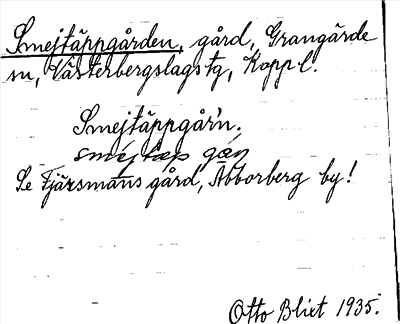 Smejtäppgården, gård, Grangärde
sn, Västerbergslags tg, Kopp l.
Smejtäppgår'n.
smejtäp gån
Se Fjärsmans gård, Abborberg by!
Otto Blixt 1935.